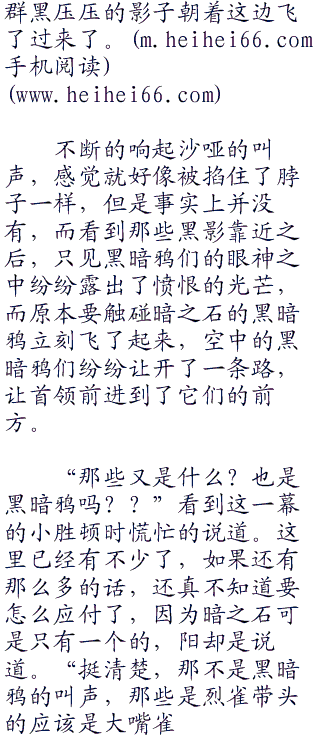 群黑压压的影子朝着这边飞
了过来了。(m.heihei66.com
手机阅读)
(www.heihei66.com)
不断的响起沙哑的叫
声，感觉就好像被掐住了脖
子一样，但是事实上并没
有，而看到那些黑影靠近之
后，只见黑暗鸦们的眼神之
中纷纷露出了愤恨的光芒，
而原本要触碰暗之石的黑暗
鸦立刻飞了起来，空中的黑
暗鸦们纷纷让开了一条路，
让首领前进到了它们的前
方。
“那些又是什么？也是
黑暗鸦吗？？”看到这一幕
的小胜顿时慌忙的说道。这
里已经有不少了，如果还有
那么多的话，还真不知道要
怎么应付了，因为暗之石可
是只有一个的，阳却是说
道。“挺清楚，那不是黑暗
鸦的叫声，那些是烈雀带头
的应该是大嘴雀